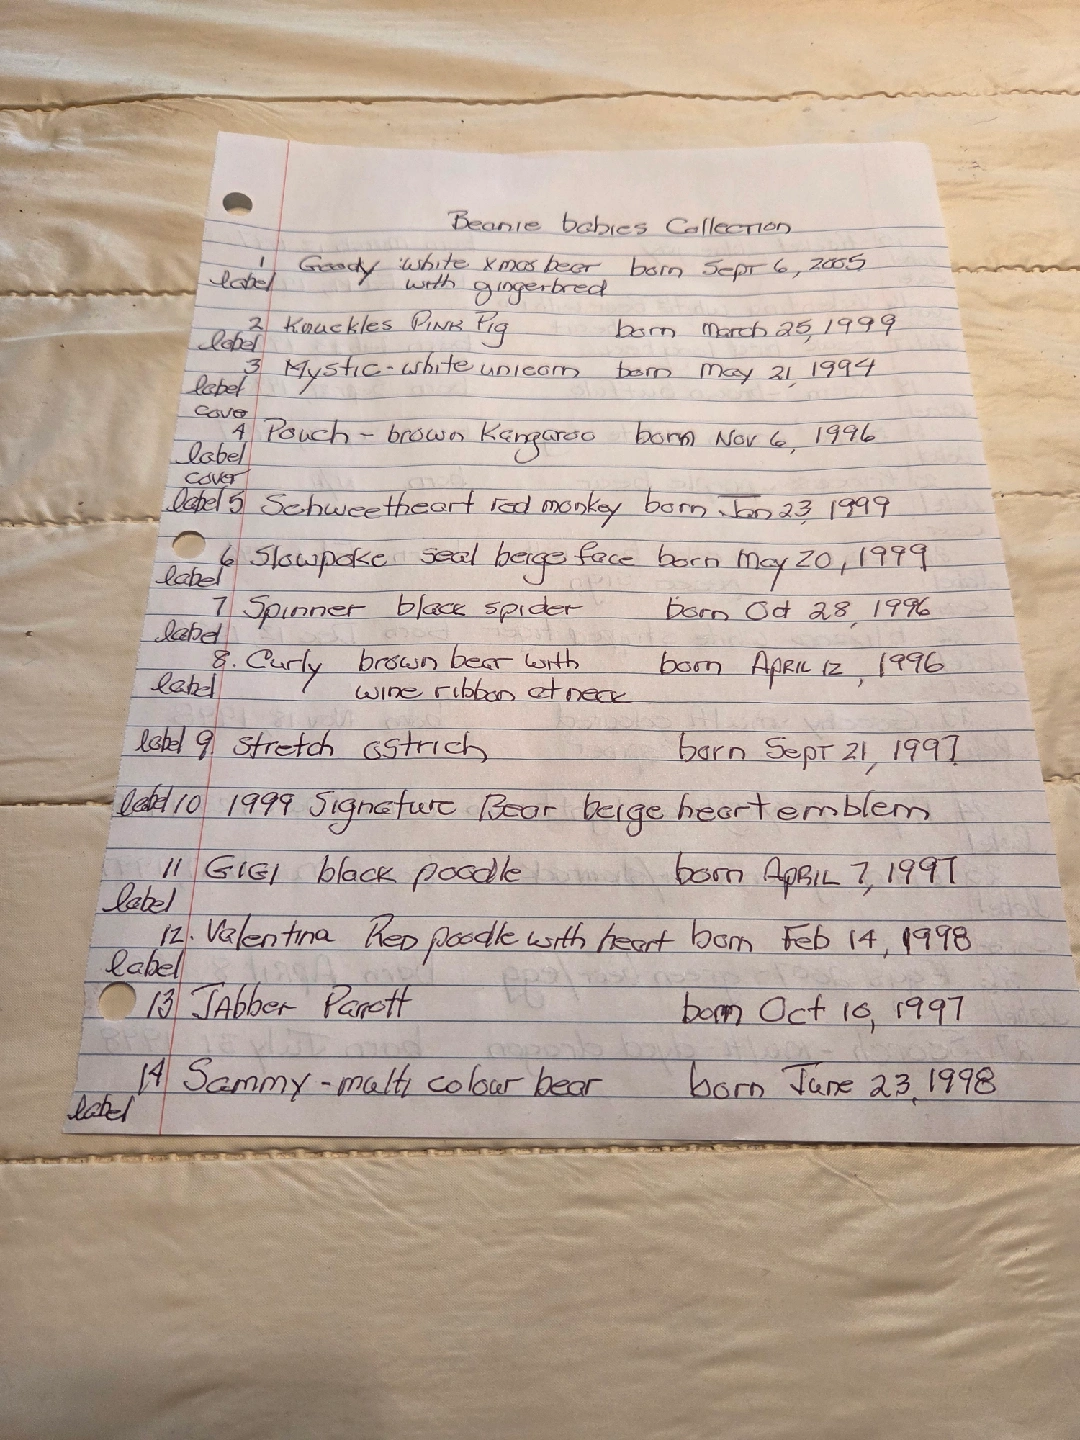 Beanie babies Collection
1 Goody white xmas bear born Sept 6, 2005
label with gingerbred
2 Knuckles Pink Pig born March 25, 1999
label
3 Mystic - white unicorn born May 21, 1994
label
cover
4 Pouch - brown Kangaroo born Nov 6, 1996
label
cover
label 5 Schweetheart red monkey born Jan 23, 1999
6 Slowpoke seal beige face born May 20, 1999
label
7 Spinner black spider born Oct 28, 1996
label
8. Curly brown bear with born APRIL 12, 1996
label wine ribbon at neck
label 9 Stretch ostrich born Sept 21, 1997
label 10 1999 Signature Bear beige heart emblem
11 GIGI black poodle born APRIL 7, 1997
label
12. Valentina Red poodle with heart born Feb 14, 1998
label
13 JAbber Parott born Oct 10, 1997
14 Sammy - multi colour bear born June 23, 1998
label